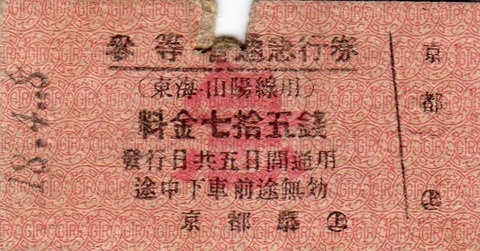 參等 普通急行券
(東海・山陽線用)
料金七拾五錢
發行日共五日間通用
途中下車前途無効
京都驛 ㊤
京都
㊤
18.4.-8